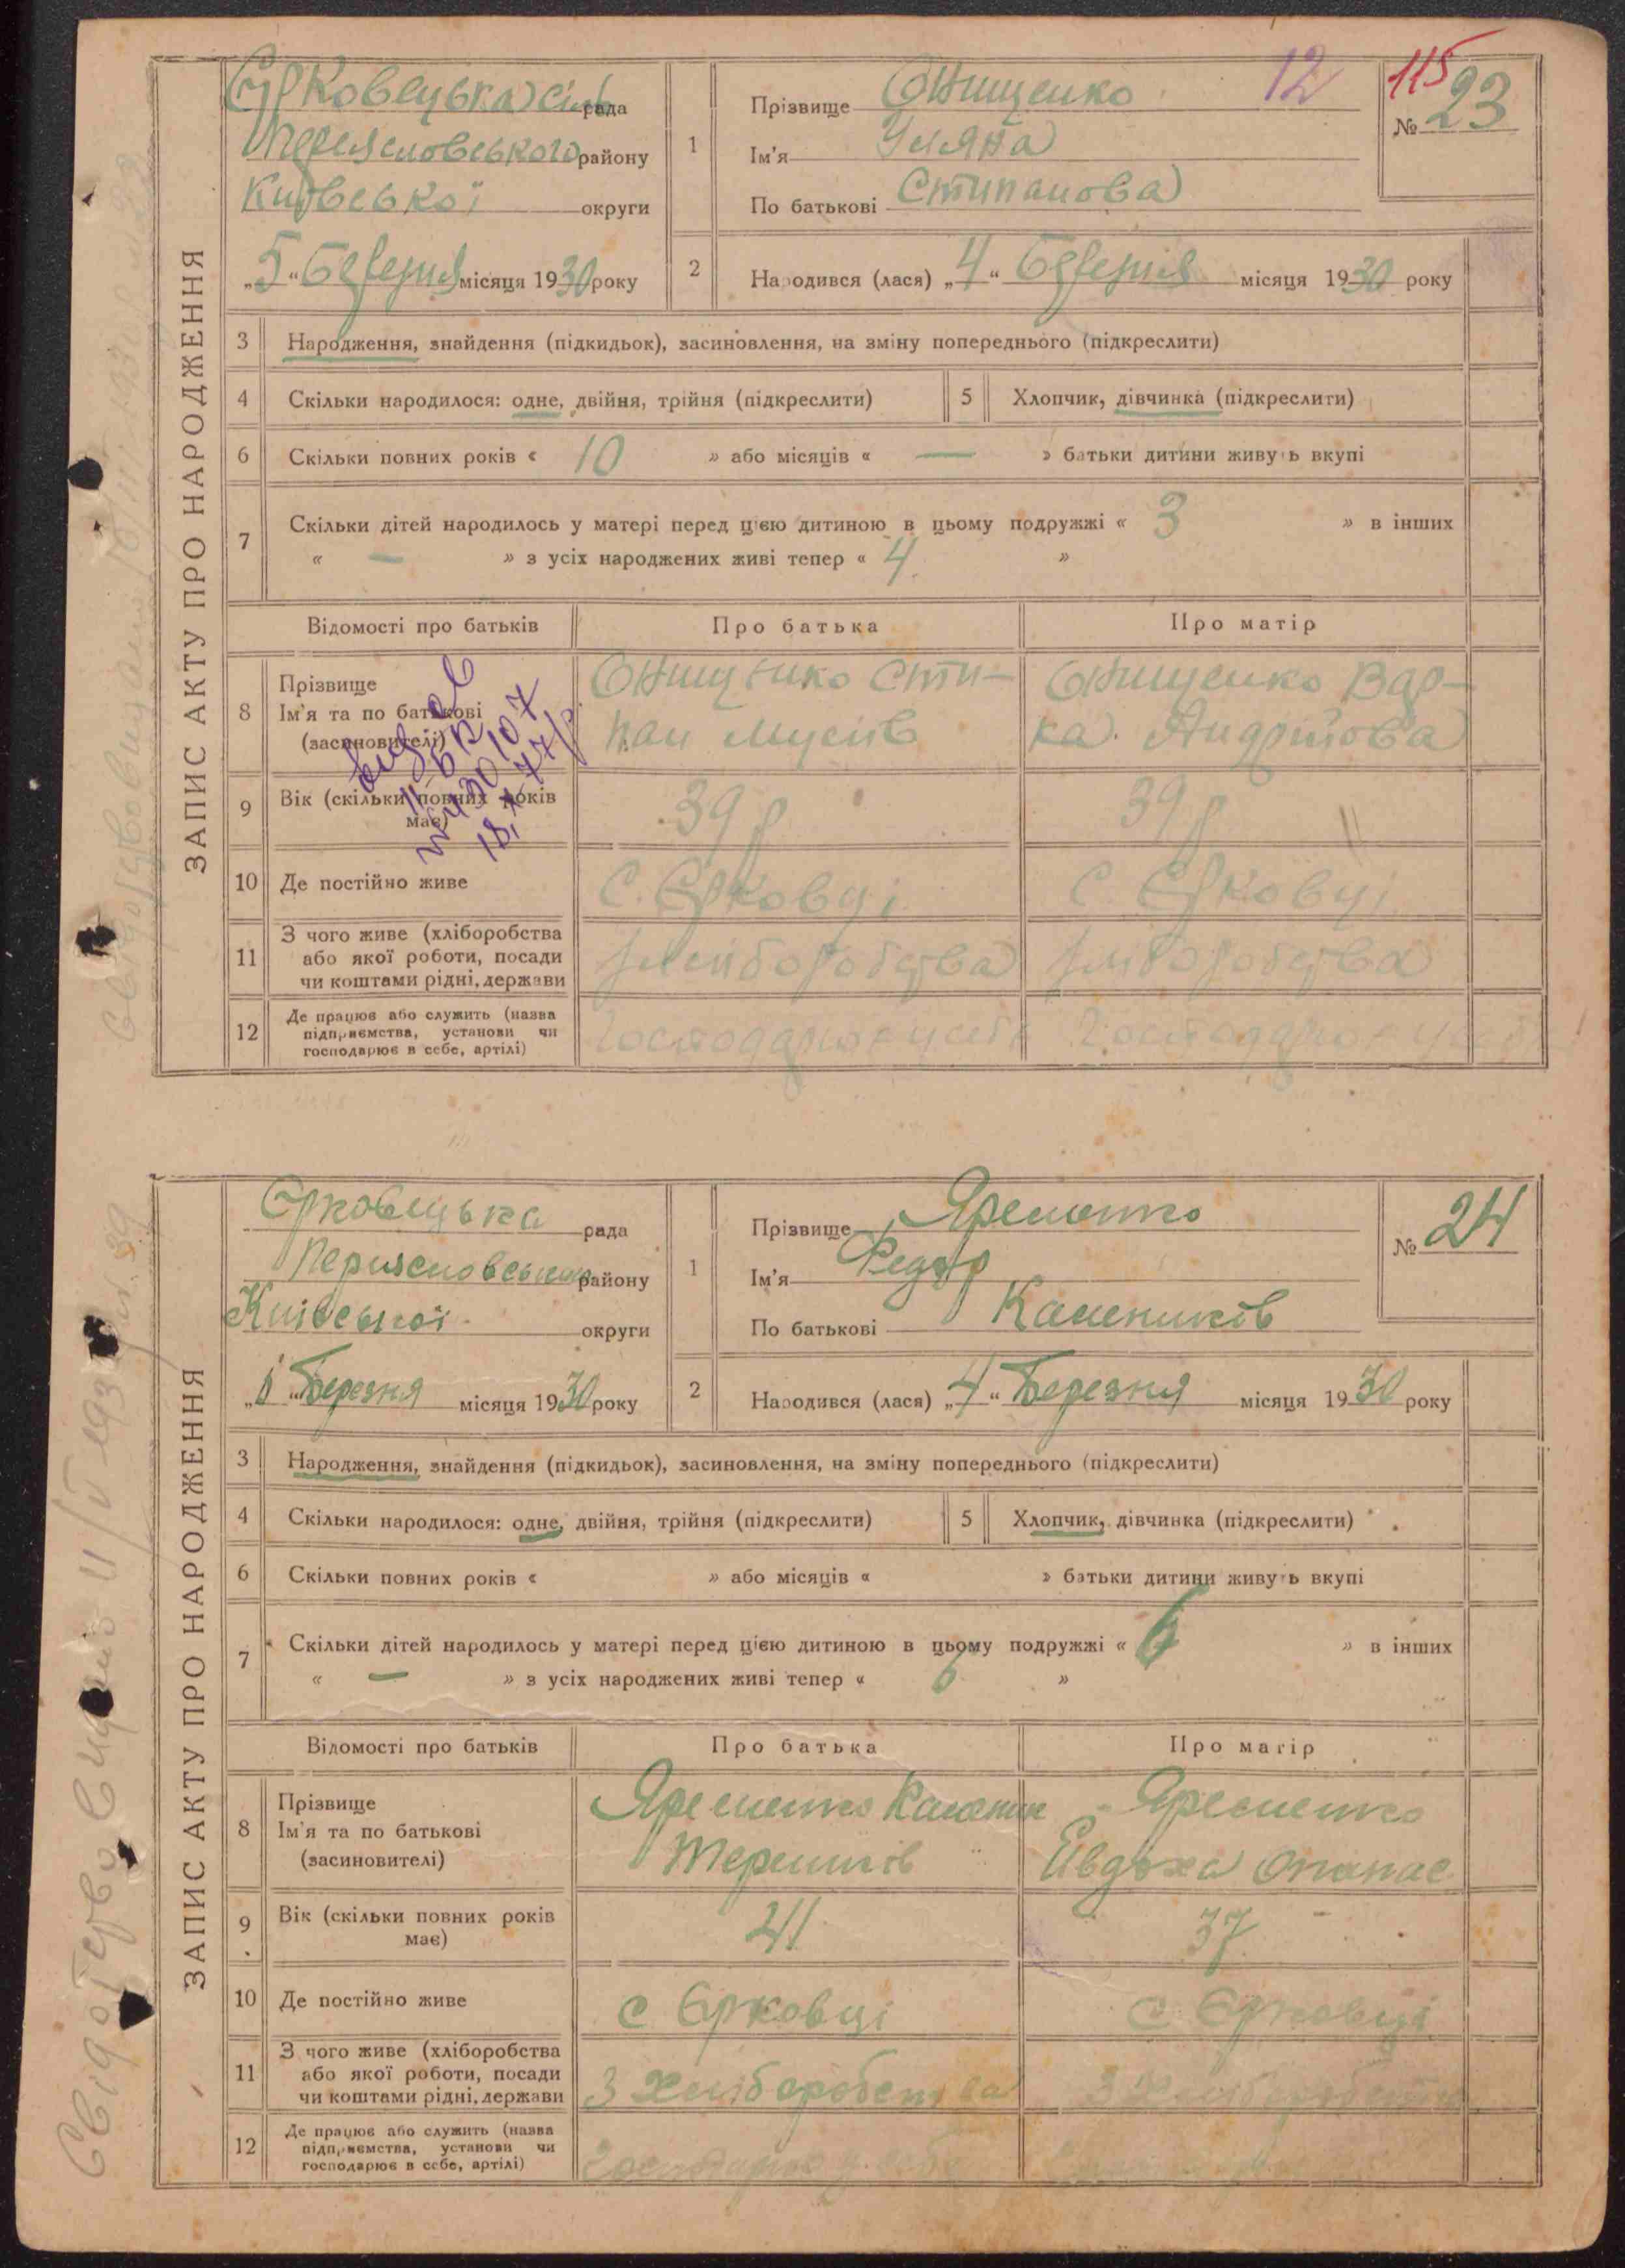 ЗАПИС АКТУ ПРО НАРОДЖЕННЯ
Єрковецька сіл рада
Переясловського району
Київської округи
„5“ березня місяця 1930 року
1 Прізвище Онищенко
Ім'я Уляна
По батькові Стипанова
12
115
№ 23
2 Народився (лася) „4“ березня місяця 1930 року
3 Народження, знайдення (підкидьок), засиновлення, на зміну попереднього (підкреслити)
4 Скільки народилося: одне, двійня, трійня (підкреслити) 5 Хлопчик, дівчинка (підкреслити)
6 Скільки повних років « 10 » або місяців « — » батьки дитини живуть вкупі
7 Скільки дітей народилось у матері перед цією дитиною в цьому подружжі « 3 » в інших
« — » з усіх народжених живі тепер « 4 »
Відомості про батьків Про батька Про матір
8 Прізвище
Ім'я та по батькові
(засиновителі)
Онищенко Сти-
пан Мусіїв
Онищенко Вар-
ка Андрійова
9 Вік (скільки повних років
має)
39 р
39 р
10 Де постійно живе с. Єрковці с. Єрковці
11 З чого живе (хліборобства
або якої роботи, посади
чи коштами рідні, держави
хліборобства хліборобства
12 Де працює або служить (назва
підприємства, установи чи
господарює в себе, артілі)
ЗАПИС АКТУ ПРО НАРОДЖЕННЯ
Єрковецька рада
Переясловського району
Київської округи
Березня місяця 1930 року
1 Прізвище Яременко
Ім'я Федір
По батькові Калеників
№ 24
2 Народився (лася) „4“ Березня місяця 1930 року
3 Народження, знайдення (підкидьок), засиновлення, на зміну попереднього (підкреслити)
4 Скільки народилося: одне, двійня, трійня (підкреслити) 5 Хлопчик, дівчинка (підкреслити)
6 Скільки повних років « » або місяців « » батьки дитини живуть вкупі
7 Скільки дітей народилось у матері перед цією дитиною в цьому подружжі « 6 » в інших
« — » з усіх народжених живі тепер « 6 »
Відомості про батьків Про батька Про матір
8 Прізвище
Ім'я та по батькові
(засиновителі)
Яременко Каленик
Терешків
Яременко
Євдоха Опанас
9 Вік (скільки повних років
має)
41
37
10 Де постійно живе с Єрковці с Єрковці
11 З чого живе (хліборобства
або якої роботи, посади
чи коштами рідні, держави
З Хліборобства З Хліборобства
12 Де працює або служить (назва
підприємства, установи чи
господарює в себе, артілі)